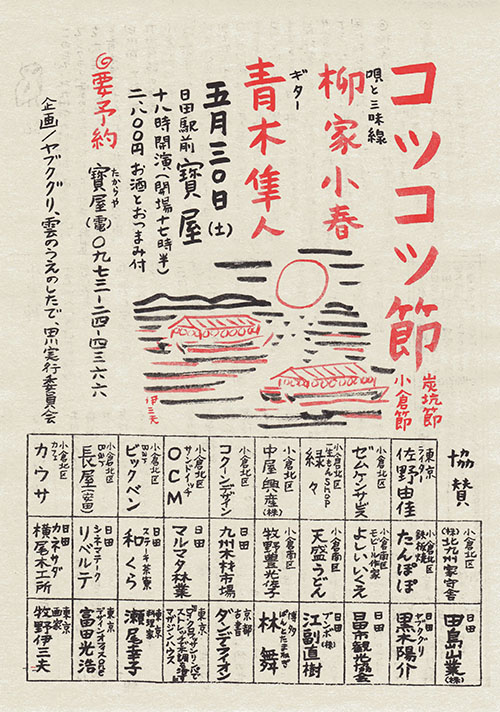 コツコツ節
炭坑節
小倉節
唄と三味線
柳家小春
ギター
青木隼人
五月三〇日(土)
日田駅前 寳屋
十八時開演(開場十七時半)
二、八〇〇円 お酒とおつまみ付
◎要予約
たからや
寳屋(電)〇九七三-二四-四三六六
企画/ヤブクグリ、雲のうえのしたで、日田実行委員会
伊三夫
協賛
東京
ライター
佐野由佳
小倉北区
ゼムケンサービス
小倉北区
一生もんShop
緑々
小倉北区
中屋興産(株)
小倉北区
コクーンデザイン
小倉北区
サンドイッチ
OCM
小倉北区
Bar
ビッグベン
小倉北区
長屋
小倉北区
カフェ
カウサ
小倉北区
(株)北九州家守舎
小倉北区
鉄板焼
たんぽぽ
小倉南区
モビール作家
よしいいくえ
小倉南区
天盛うどん
小倉南区
牧野豊光
日田
九州木材市場
日田
マルマタ林業
日田
ステーキ茶寮
和くら
日田
シネマテーク
リベルテ
日田
横尾木工所
日田
田島山業(株)
日田
ヤブクグリ
黒木陽介
日田
日田市観光協会
日田
江副直樹
博多
林舞
京都
古書
ダンデライオン
東京
マガジンハウス
東京
料理家
瀬尾幸子
東京
富田光浩
東京
画家
牧野伊三夫